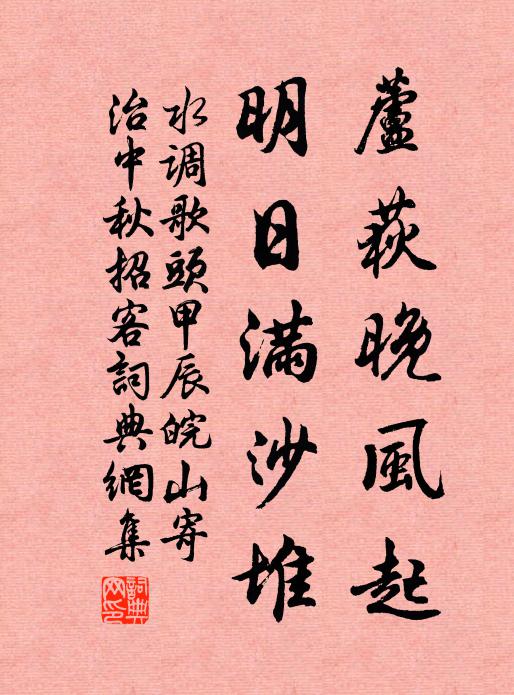 蘆荻晚風起
明日滿沙堆
水調歌頭甲辰皖山寄
治中秋招客詞典網集
詞典網印